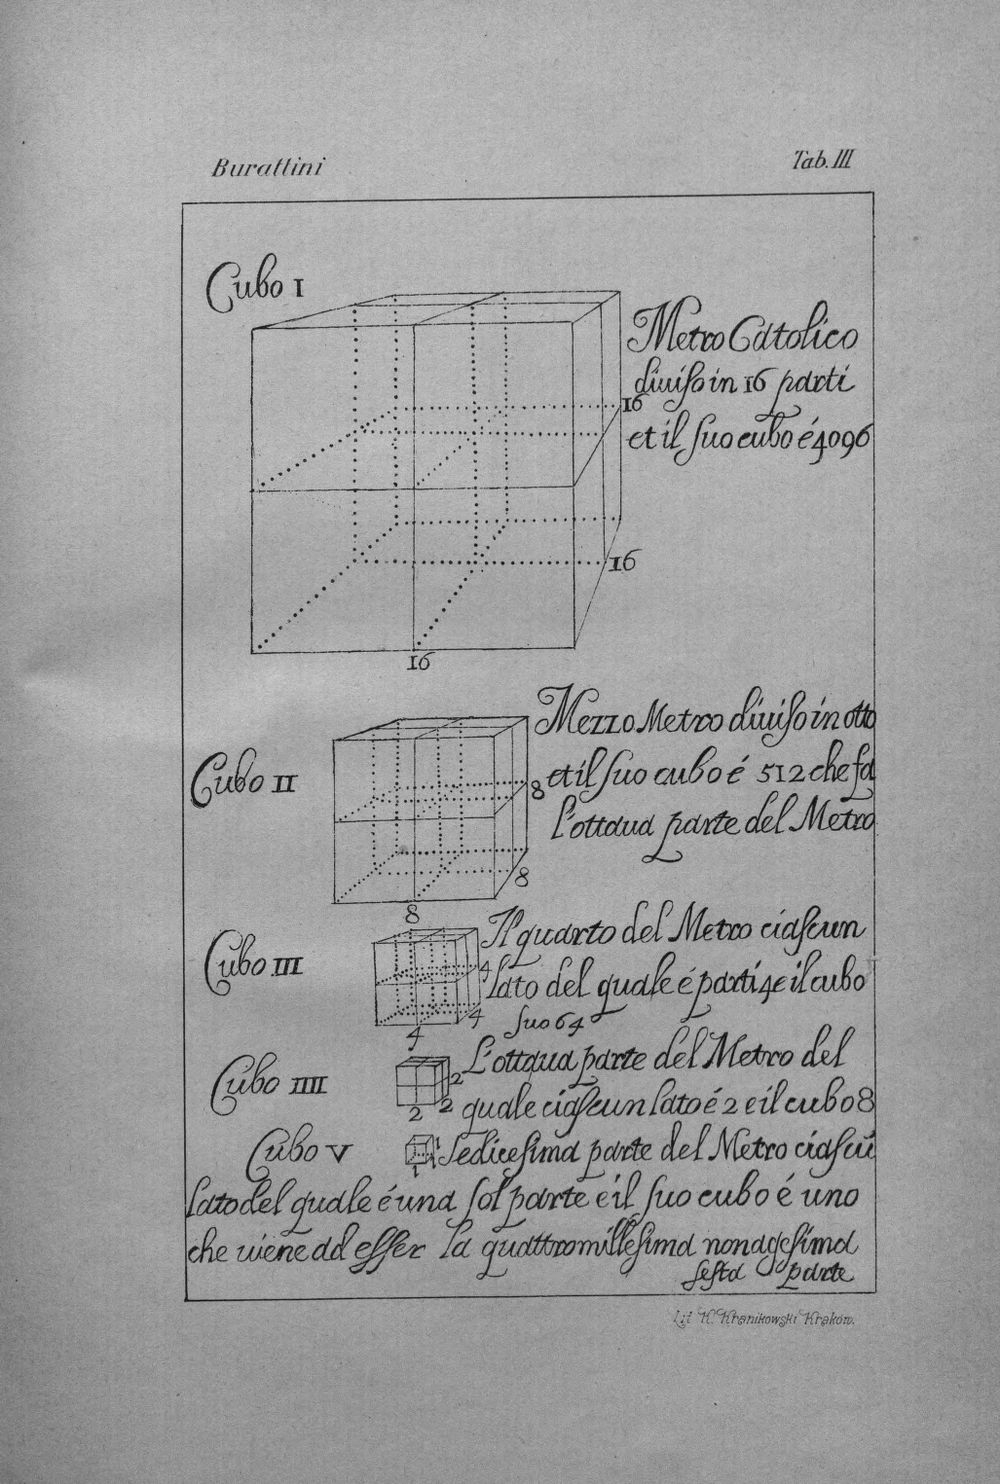 Burattini
Tab. III
Cubo I
Metro Catolico
diuiso in 16 parti
16
et il suo cubo é 4096
16
16
Mezzo Metro diuiso in otto
Cubo II
8 et il suo cubo é 512 che fa
l'ottaua parte del Metro
8
8
Il quarto del Metro ciascun
Cubo III
4 lato del quale é parti 4 e il cubo
4 suo 64
4
L'ottaua parte del Metro del
Cubo IIII
2
2 2 quale ciascun lato é 2 e il cubo 8
Cubo V
1 Sedicesima parte del Metro ciascũ
1 1
lato del quale é una sol parte e il suo cubo é uno
che uiene ad esser la quattromillesima nonagesima
sesta parte
Lit K. Kranikowski Kraków.